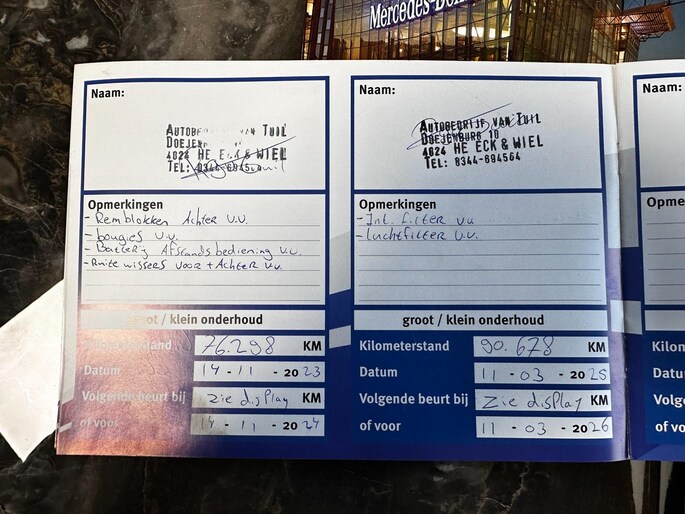 Mercedes-Ben
Naam:
AUTOBE VAN TUIL
DOEJEN
4024 HE ECK & WIEL
TEL:
Opmerkingen
- Remblokken Achter v.v.
- bougies v.v.
- Batterij Afstandsbediening v.v.
- Ruite wissers voor + Achter v.v.
groot / klein onderhoud
Kilometerstand 76.298 KM
Datum 14 - 11 - 2023
Volgende beurt bij zie display KM
of voor 14 - 11 - 2024
Naam:
AUTOBEDRIJF VAN TUIL
DOEJENBURG 10
4024 HE ECK & WIEL
TEL: 0344-694564
Opmerkingen
- Int. filter vu
- luchtfilter v.v.
groot / klein onderhoud
Kilometerstand 90.678 KM
Datum 11 - 03 - 2025
Volgende beurt bij zie display KM
of voor 11 - 03 - 2026
Naam:
Opme
Kilon
Datu
Volg
of vo